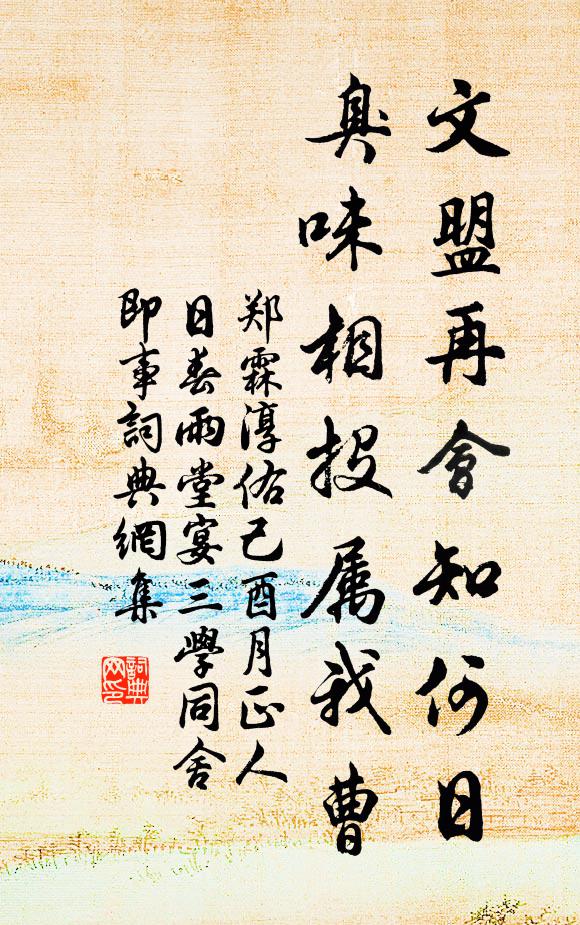 文盟再會知何日
臭味相投属我曹
郑霖淳佑己酉月正人
日春雨堂宴三學同舍
即事詞典網集
詞典网印